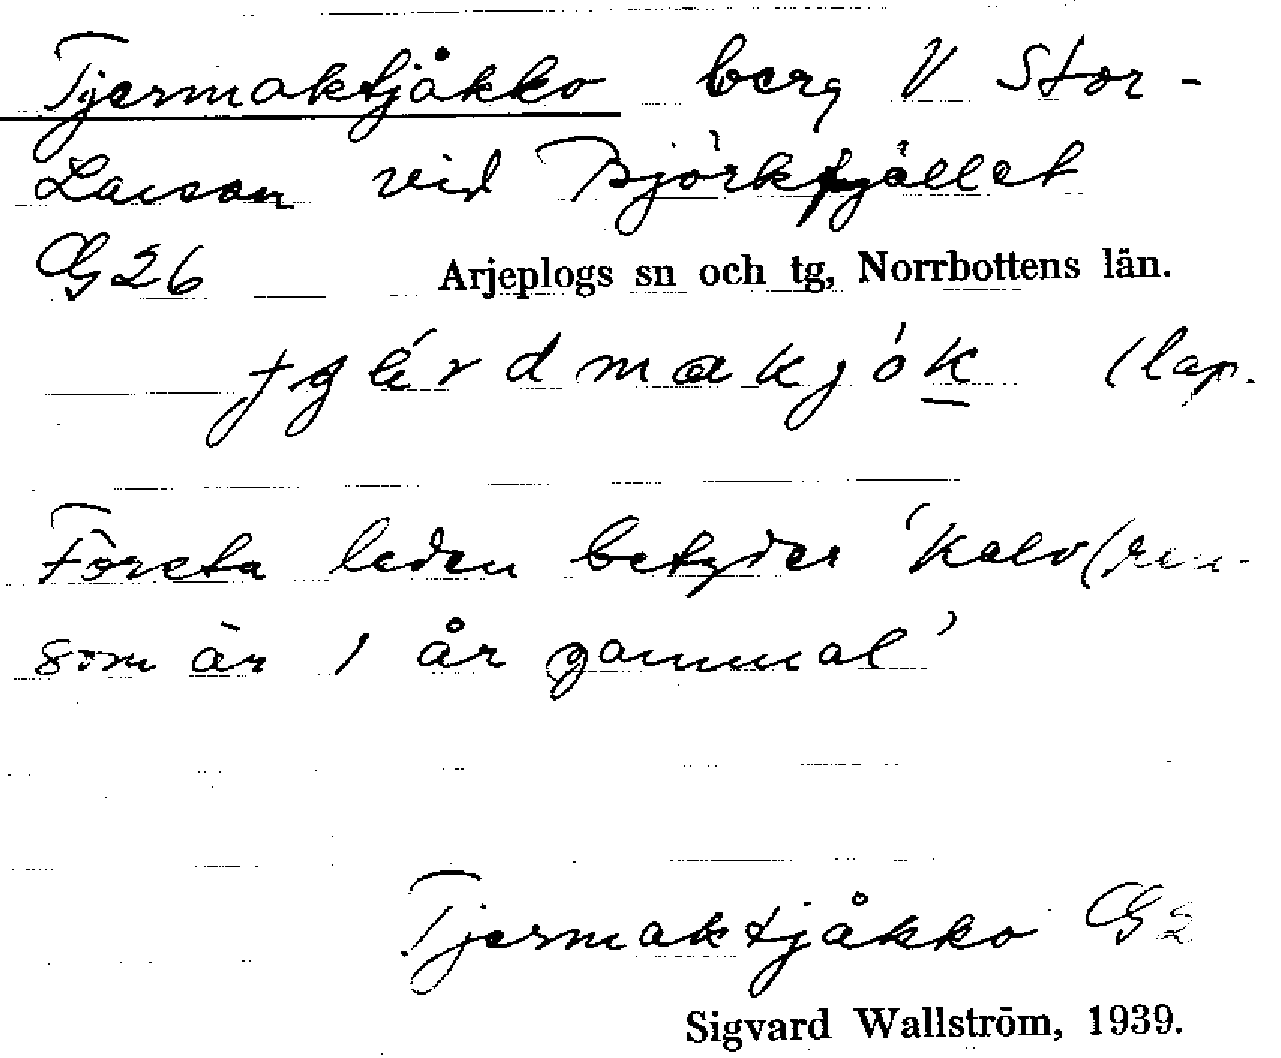 Tjermaktjåkko berg V Stor-
Laisan vid Björkfjället
CG 26 Arjeplogs sn och tg, Norrbottens län.
(lap.
Första leden betyder 'kalv (ren-
som är 1 år gammal'
Tjermaktjåkko CG 2
Sigvard Wallström, 1939.